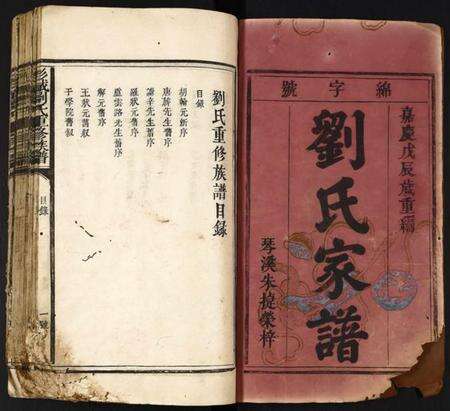 絲字號
嘉慶戊辰歲重編
劉氏家譜
琴溪朱挺榮梓
劉氏重修族譜目錄
目錄
胡翰元新序
唐時先生舊序
謙辛先生舊序
羅狀元舊序
盧雲路先生舊序
解元舊序
王狀元舊叙
于學院舊叙
彭城劉氏重修族譜
目錄
一號